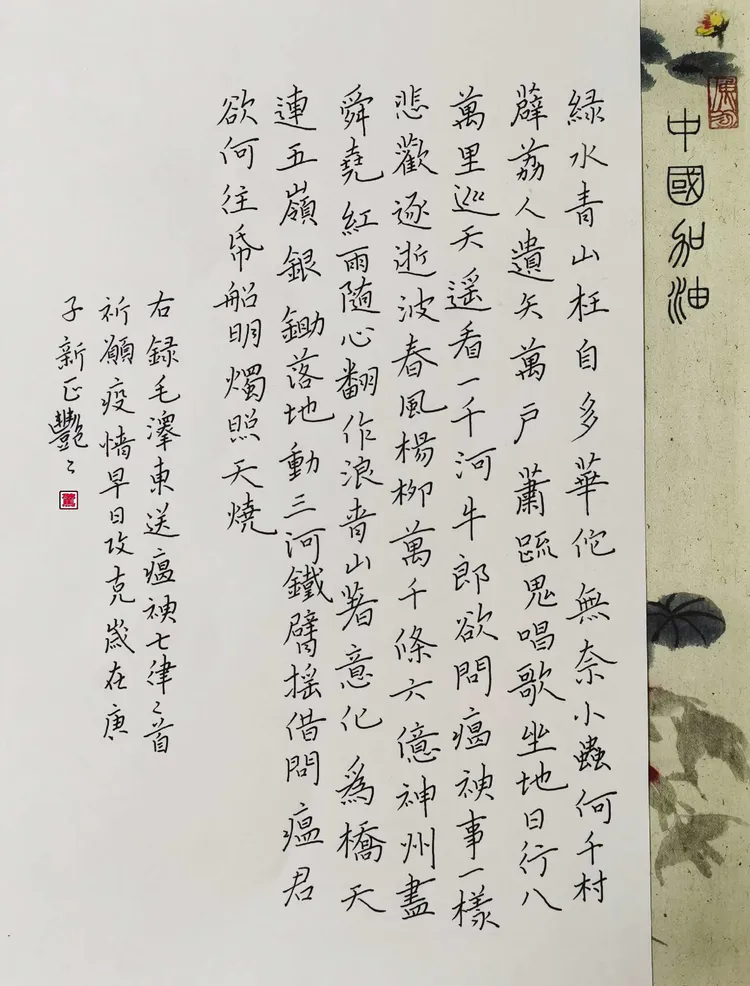 中國加油
緑水青山枉自多華佗無奈小蟲何千村
薜荔人遺矢萬户蕭踈鬼唱歌坐地日行八
萬里巡天遥看一千河牛郎欲問瘟神事一樣
悲歡逐逝波春風楊柳萬千條六億神州盡
舜堯紅雨隨心翻作浪青山著意化爲橋天
連五嶺銀鋤落地動三河鐵臂摇借問瘟君
欲何往帋船明燭照天燒
右録毛澤東送瘟神七律二首
祈願疫情早日攻克嵗在庚
子新正艷〻